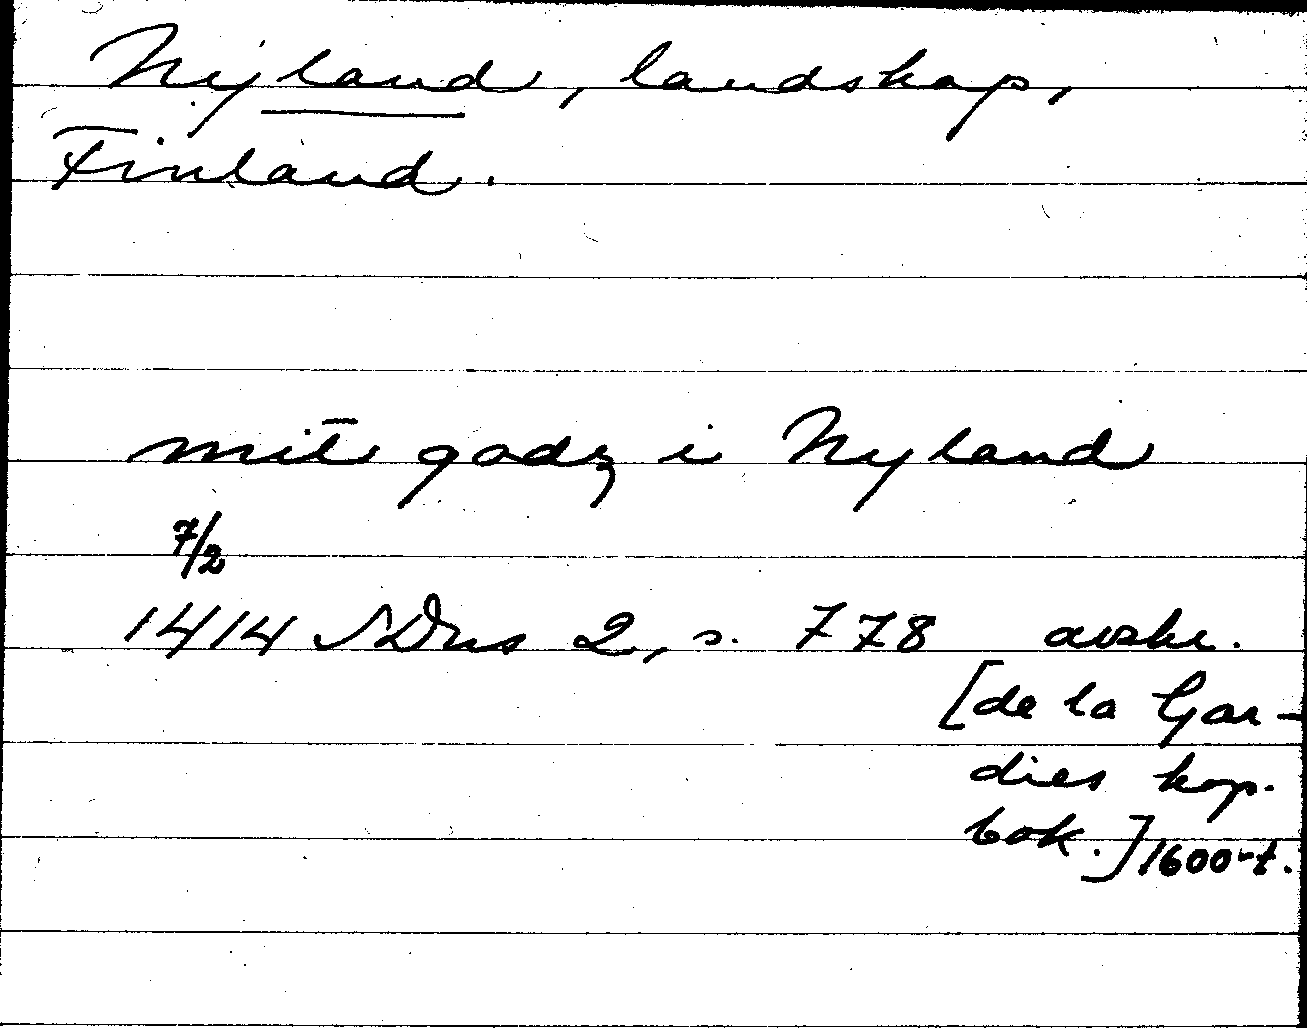 Nyland, landskap,
Finland.
mit̄ godz i Nyland
7/2
1414 SDns 2, s. 778 avskr.
[de la Gar-
dies kop.
bok.] 1600-t.